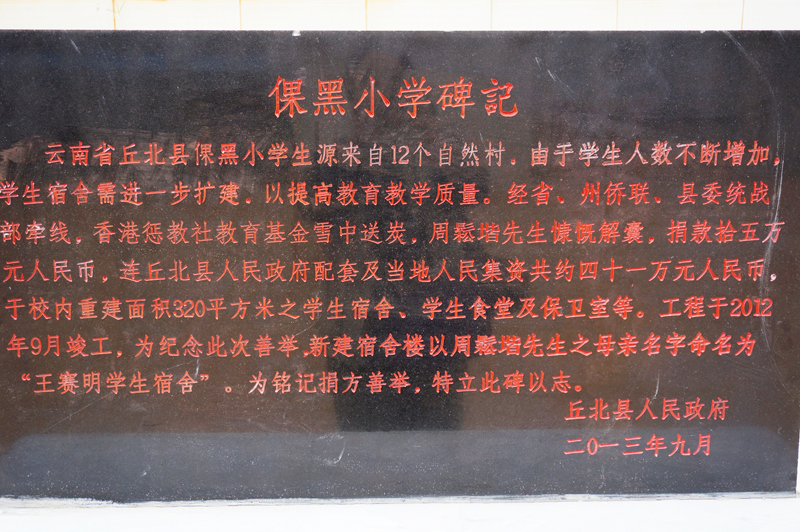 倮黑小学碑記
云南省丘北县倮黑小学生源来自12个自然村．由于学生人数不断增加，
学生宿舍需进一步扩建．以提高教育教学质量。经省、州侨联、县委统战
部牵线，香港惩教社教育基金雪中送炭，周鬆堦先生慷慨解囊，捐款拾五万
元人民币，连丘北县人民政府配套及当地人民集资共约四十一万元人民币，
于校内重建面积320平方米之学生宿舍、学生食堂及保卫室等。工程于2012
年9月竣工，为纪念此次善举，新建宿舍楼以周鬆堦先生之母亲名字命名为
“王赛明学生宿舍”。为铭记捐方善举，特立此碑以志。
丘北县人民政府
二〇一三年九月